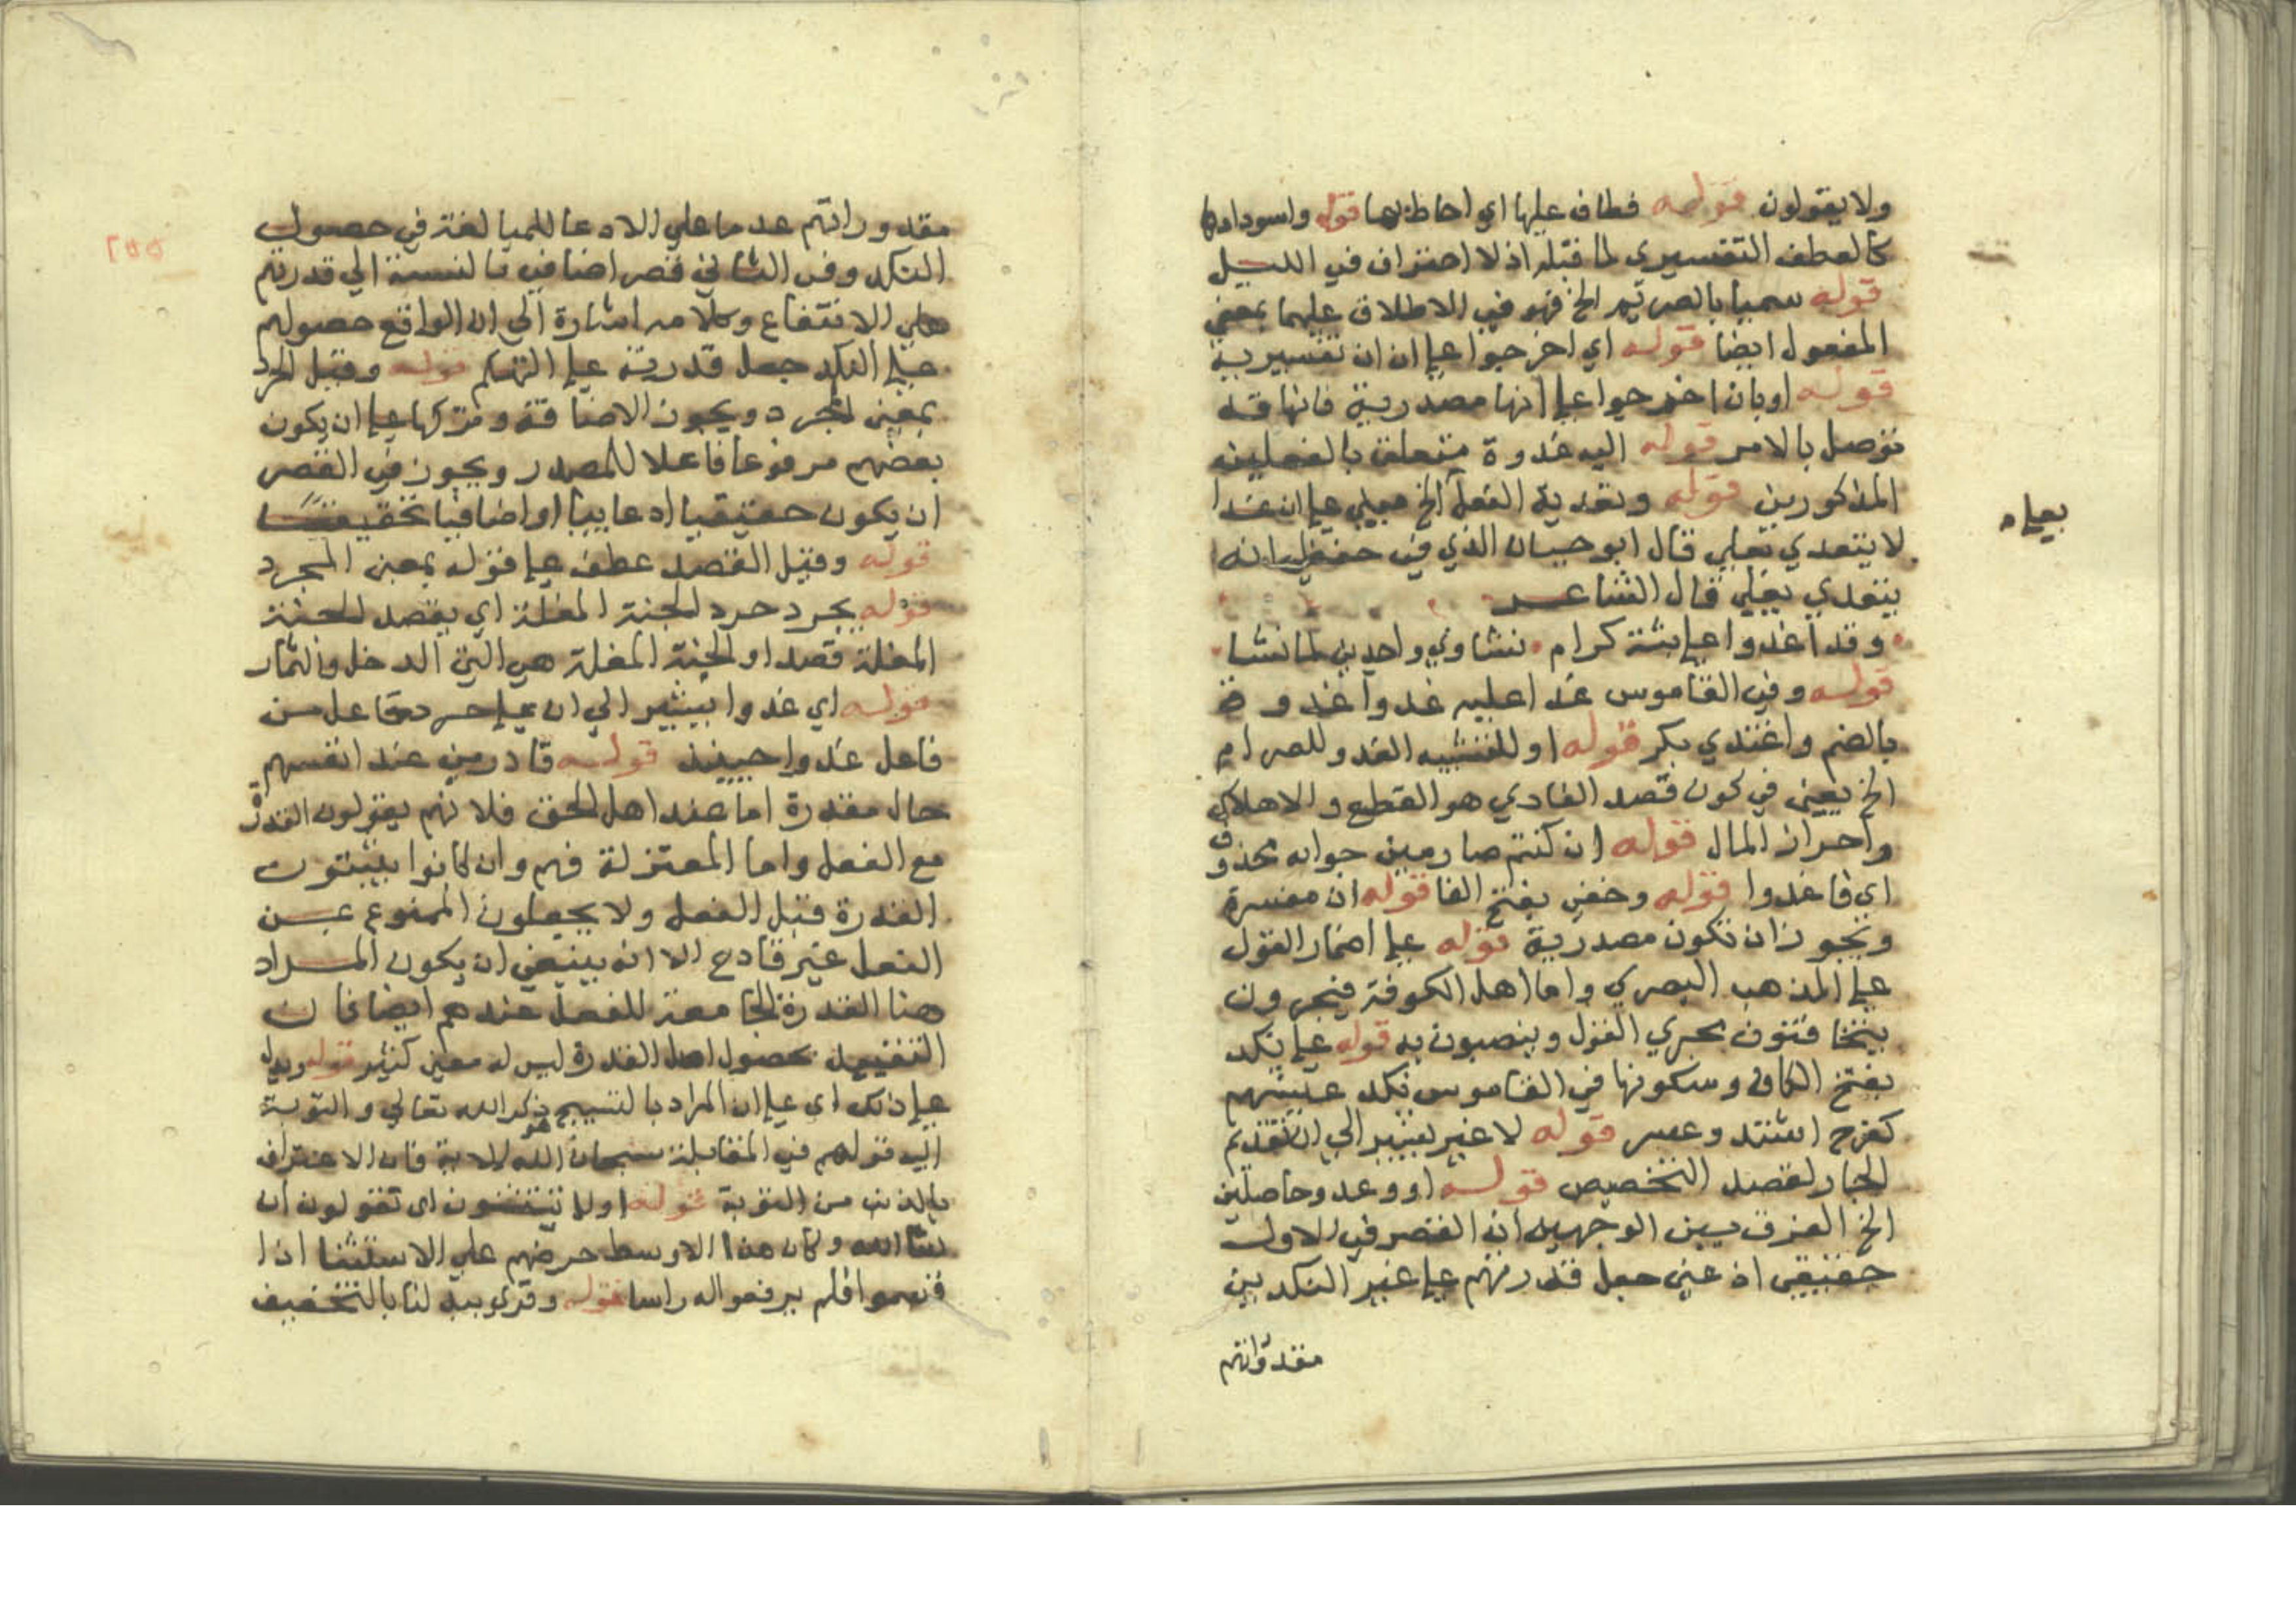 ولا يقولون قوله فطاف عليها اي احاط بها قوله واسودادها
كالعطف التفسيري لما قبله اذ لا احتراق في الليل
قوله سميا بالصريم الخ فهو في الاطلاق عليهما بمعنى
المفعول ايضا قوله اي اخرجوا على ان ان تفسيرية
قوله او بان اخرجوا على انها مصدرية فانها قد
توصل بالامر قوله اليه غدوة متعلق بالفعلين
المذكورين قوله وتعدية الفعل الخ مبني على ان غدا
بعلى
لا يتعدي بعلى قال ابو حيان الذي في حفظي انه
يتعدي بعلى قال الشاعر
وقد اغدوا على ثبة كرام نشاوي واجدين لما نشا
قوله وفي القاموس غدا عليه غدوا غدوة
بالضم واغتدي بكر قوله او للتشبيه الغدو للصرام
الخ يعني في كون قصد الغادي هو القطع والاهلاك
واحراز المال قوله ان كنتم صارمين جوابه محذوف
اي فاغدوا قوله وخفي بفتح الفا قوله ان مفسرة
ويجوز ان تكون مصدرية قوله على اضمار القول
على المذهب البصري واما اهل الكوفة فيجرون
يتخافتون مجري القول وينصبون به قوله على نكد
بفتح الكاف وسكونها في القاموس نكد عيشهم
كفرح اشتد وعسر قوله لا غير يشير الي ان تقديم
الجار لقصد التخصيص قوله او وغدوا حاصلين
الخ الفرق بين الوجهين ان القصر في الاول
حقيقي اذ عني جعل قدرتهم على غير النكد بين
مقدوراتهم
مقدوراتهم عدما على الادعا للمبالغة في حصول
النكد وفي الثاني قصر اضافي بالنسبة الي قدرتهم
على الانتفاع وكلامه اشارة الي ان الواقع حصولهم
على النكد جعل قدرية على التهكم قوله وقيل الحرد
بمعنى الحرد ويجوز الاضافة وتركها على ان يكون
بعضهم مرفوعا فاعلا للمصدر ويجوز في القصر
ان يكون حقيقيا ادعاييا او اضافيا تحقيقيا
قوله وقيل القصد عطف على قوله بمعنى الحرد
قوله يحرد حرد الجنة المغلة اي يقصد الجنة
المغلة قصدا والجنة المغلة هي التي الدخل والثمار
قوله اي غدوا يشير الي ان على حرد حال من
فاعل غدوا حينئذ قوله قادرين عند انفسهم
حال مقدرة اما عند اهل الحق فلانهم يقولون القدرة
مع الفعل واما المعتزلة فهم وان كانوا يثبتون
القدرة قبل الفعل ولا يجعلون الممنوع عن
الفعل غير قادح الا انه ينبغي ان يكون المراد
هنا القدرة الجامعة للفعل عندهم ايضا فان
التقييد بحصول اصل القدرة ليس له معنى كثير قوله ويدل
على ذلك اي على ان المراد بالتسبيح ذكر الله تعالي والتوبة
اليه قولهم في المقابلة سبحان الله الاية فان الاعتراف
بالذنب من التوبة قوله اولا تستثنون اي تقولون ان
شا الله وكان هذا الاوسط حرضهم على الاستثنا اذا
قسموا فلم يرفعوا له راسا قوله وقري يبدلنا بالتخفيف
٢٥٥